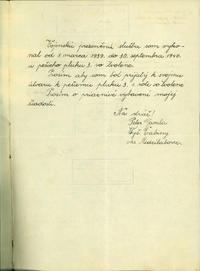 Vojenskú prezenčnú službu som vyko-
nal od 1. marca 1939. do 30. septembra 1940.
u pešieho pluku 3. vo Zvolene.
Prosím aby som bol prijatý k svojmu
útvaru k pešiemu pluku 3. v ... vo Zvolene
Prosím o priaznivé vybavenie mojej
žiadosti.
Na stráž!
Peter
Vyš.